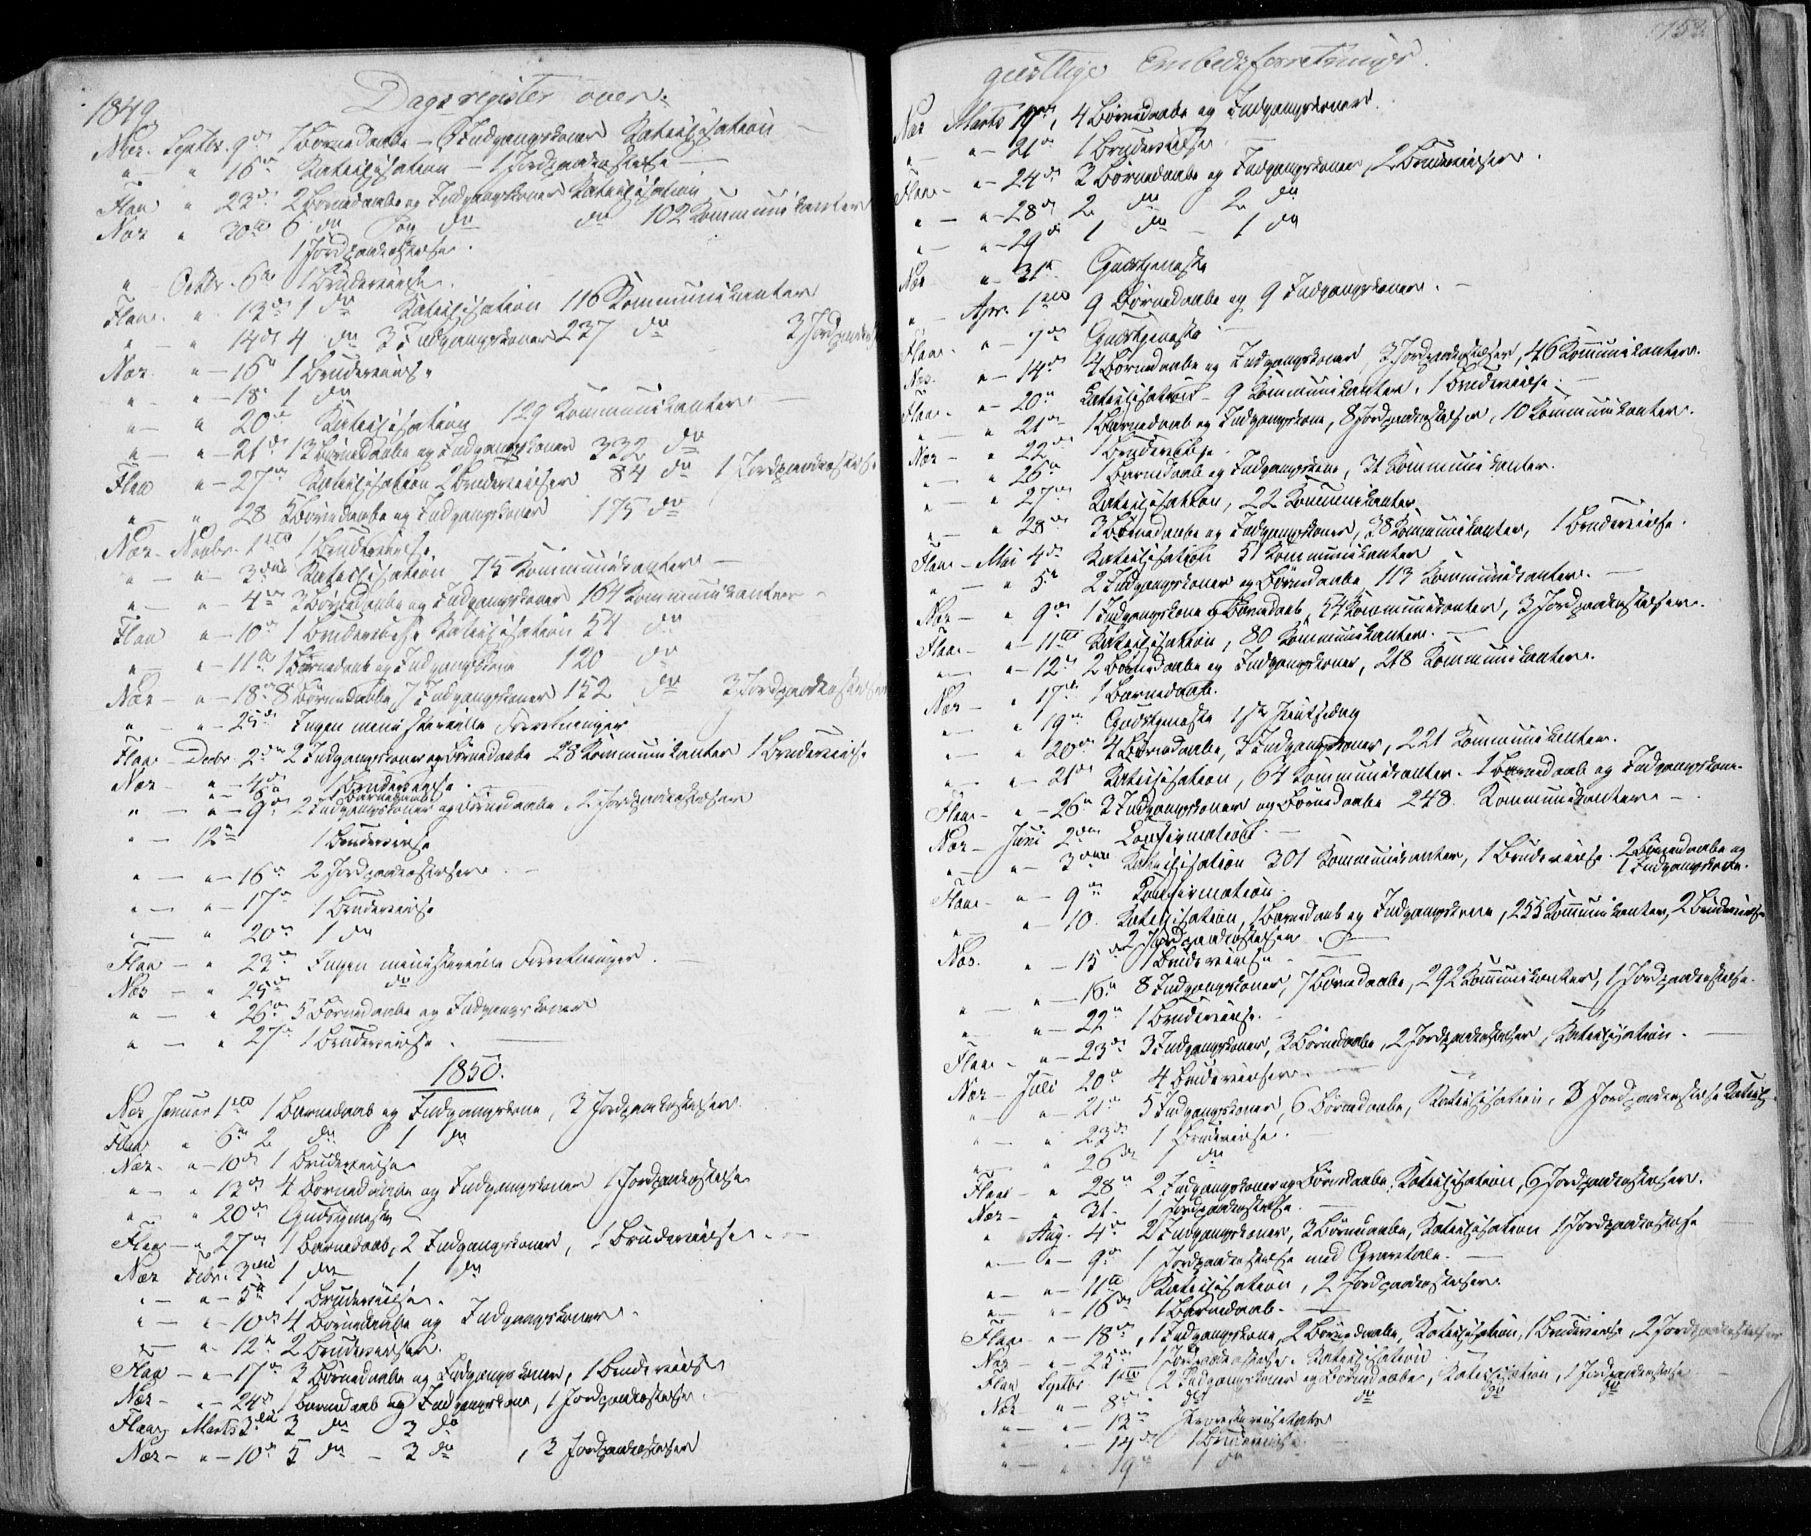 Dagsregister over
1849.
Næs. Septbr. 9de 1 Barnedaab – Indgangskoner Katekisation –
" – " 16de Katekisation – 1 Jordpaakastelse –
Flaa " 23de 2 Børnedaabe og Indgangskoner Katekisation
Næs " 30te 6 do og do do 102 Kommunikanter
1 Jordpaakastelse.
" – Octbr. 6te 1 Brudevielse.
Flaa. " 13de 1 do Katekisation 116 Kommunikanter
" – " 14de 4 do 3 Indgangskoner 237 do 3 Jordpaak
Næs. " – 16de 1 Brudevielse
" – " – 18de 1 do
" – " 20de Katekisation 129 Kommunikanter –
" – " – 21de 13 Børnedaabe og Indgangskoner 332 do
Flaa " – 27de Katekisation 2 Brudevielser 84 do 1 Jordpaakastelse
" – " 28 Børnedaabe og Indgangskoner 175 do
Næs – Novbr. 1ste 1 Brudevielse.
" – " – 3die Katekisation 75 Kommunikanter –
" – " – 4de 3 Børnedaabe og Indgangskoner 164 Kommunikanter –
Flaa " – 10de 1 Brudevielse Katekisation 54 do
" – " – 11te 1 Barnedaab og Indgangskone 120 do
Næs – " – 18de 8 Børnedaabe 7 Indgangskoner 152 do 3 Jordpaakastelser
" – " – 25de Ingen ministerielle Forretninger
Flaa – Decbr. 2den 2 Indgangskoner og Børnedaabe 28 Kommunikanter 1 Brudevielse
Næs – " – 4de 1 Brudevielse
" – " – 9de 2 Indgangskoner og Børnedaabe, 2 Jordpaakastelser
" – 12te 1 Brudevielse
" – " – 16de 2 Jordpaakastelser. –
" – " – 17de 1 Brudevielse
" – " 20de 1 do
Flaa – " 23de Ingen ministerielle Forretninger. –
Næs – " 25de do
" – " 26de 5 Børnedaabe og Indgangskoner
" – " 27de 1 Brudevielse. –
1850.
Næs Januar 1ste 1 Barnedaab og Indgangskone, 3 Jordpaakastelser.
Flaa " 6te 2 do 1 do
Næs. " – 10de 1 Brudevielse
" – " 13de 4 Børnedaabe og Indgangskoner 1 Jordpaakastelse
" – " 20de Gudstjeneste
Flaa – " 27de 1 Barnedaab, 2 Indgangskoner, 1 Brudevielse. –
Næs Febr. 3die 1 do 1 do
" – " – 5te 1 Brudevielse.
" – " – 10de 4 Børnedaabe og Indgangskoner.
" – " 12te 2 Brudevielser.
Flaa – " – 17de 3 Børnedaabe og Indgangskoner, 1 Brudevielse
Næs – " – 24de 1 Barnedaab og Indgangskone, 1 Jordpaakastelse.
Flaa Marts 3die 3 do 3 do
Næs – " – 10de 5 do – 3 do, 3 Jordpaakastelser
geistlige Embedsforretninger.
Næs Marts 17de, 4 Børnedaabe og Indgangskoner.
" – " – 21de 1 Brudevielse. –
Flaa – " – 24de 3 Børnedaabe og Indgangskoner, 2 Brudevielser.
" – " – 28de 2 do 2 do
" – " – 29de 1 do – 1 do
Næs " – 31te Gudstjeneste
" – Apr. 1ste 9 Børnedaabe og 9 Indgangskoner. –
Flaa. " – 7de Gudstjeneste –
Næs. " – 14de 4 Børnedaabe og Indgangskoner, 3 Jordpaakastelser, 46 Kommunikanter.
Flaa. – " – 20de Katekisation – 9 Kommunikanter, 1 Brudevielse. –
" – " 21de 1 Barnedaab og Indgangskone, 8 Jordpaakastelser, 10 Kommunikanter.
Næs – " 22de 1 Brudevielse.
" – " 26de 1 Barnedaab og Indgangskone, 31 Kommunikanter.
" – " 27de Katekisation, 22 Kommunikanter
" – " 28de 3 Børnedaabe og Indgangskoner, 38 Kommunikanter, 1 Brudevielse.
Flaa – Mai 4de Katekisation 51 Kommunikanter
" – " 5te 2 Indgangskoner og Børnedaabe 113 Kommunikanter. –
Næs – " 9de 1 Indgangskone og Barnedaab, 54 Kommunikanter, 3 Jordpaakastelser.
Flaa – " – 11te Katekisation, 80 Kommunikanter. –
" – " – 12te 2 Børnedaabe og Indgangskoner, 218 Kommunikanter.
Næs – " 17de 1 Barnedaab.
" – " 19de Gudstjeneste 1ste Pintsedag
" – " 20de 4 Børnedaabe, 3 Indgangskoner, 221 Kommunikanter.
" – " – 21de Katekisation, 64 Kommunikanter. 1 Barnedaab og Indgangskone.
Flaa – " – 26de 3 Indgangskoner og Børnedaabe 248. Kommunikanter –
Næs – Juni 2den Confirmation. –
" – " – 3die Katekisation 301 Kommunikanter, 1 Brudevielse. 2 Børnedaabe og
1 Indgangskone.
Flaa – " – 9de Confirmation.
" – " – 10. Katekisation, 1 Barnedaab og Indgangskone, 255 Kommunikanter, 2 Brudevielser
2 Jordpaakastelser. –
Næs. " – 15de 1 Brudevielse. –
" – " – 16de 8 Indgangskoner, 7 Børnedaabe, 292 Kommunikanter, 1 Jordpaakastelse.
" – " – 22de 1 Brudevielse.
Flaa – " – 23de 3 Indgangskoner, 3 Børnedaabe, 2 Jordpaakastelser, Katekisation. –
Næs – Juli 20de 4 Brudevielser. –
" – " 21de 5 Indgangskoner, 6 Børnedaabe, Katekisation, 3 Jordpaakastelse
" – " 23de 1 Brudevielse. –
" – " 26de 1 do
Flaa – " 28de 2 Indgangskoner og Børnedaabe, Katekisation, 6 Jordpaakastelser.
Næs – " 31 – 1 Jordpaakastelse. –
" Aug. 4de 2 Indgangskoner, 3 Børnedaabe, Katekisation 1 Jordpaakastelse
" – " – 9de 1 Jordpaakastelse med Gravetale. –
" – " – 11te Katekisation, 2 Jordpaakastelser.
" – " – 16de 1 Barnedaab. –
Flaa – " – 18de, 1 Indgangskone, 2 Børnedaabe, Katekisation, 1 Brudevielse, 2 Jordpaakastelser
Næs – " – 25de 1 Jordpaakastelse. Katekisation
Flaa Septbr 1ste 2 Indgangskoner og Børnedaabe, Katekisation, 1 Jordpaakastelse
Næs " – 8de do do do do
" – " – 13de
" – " – 14de 1 Brudevielse
" – " – 19de 1 do